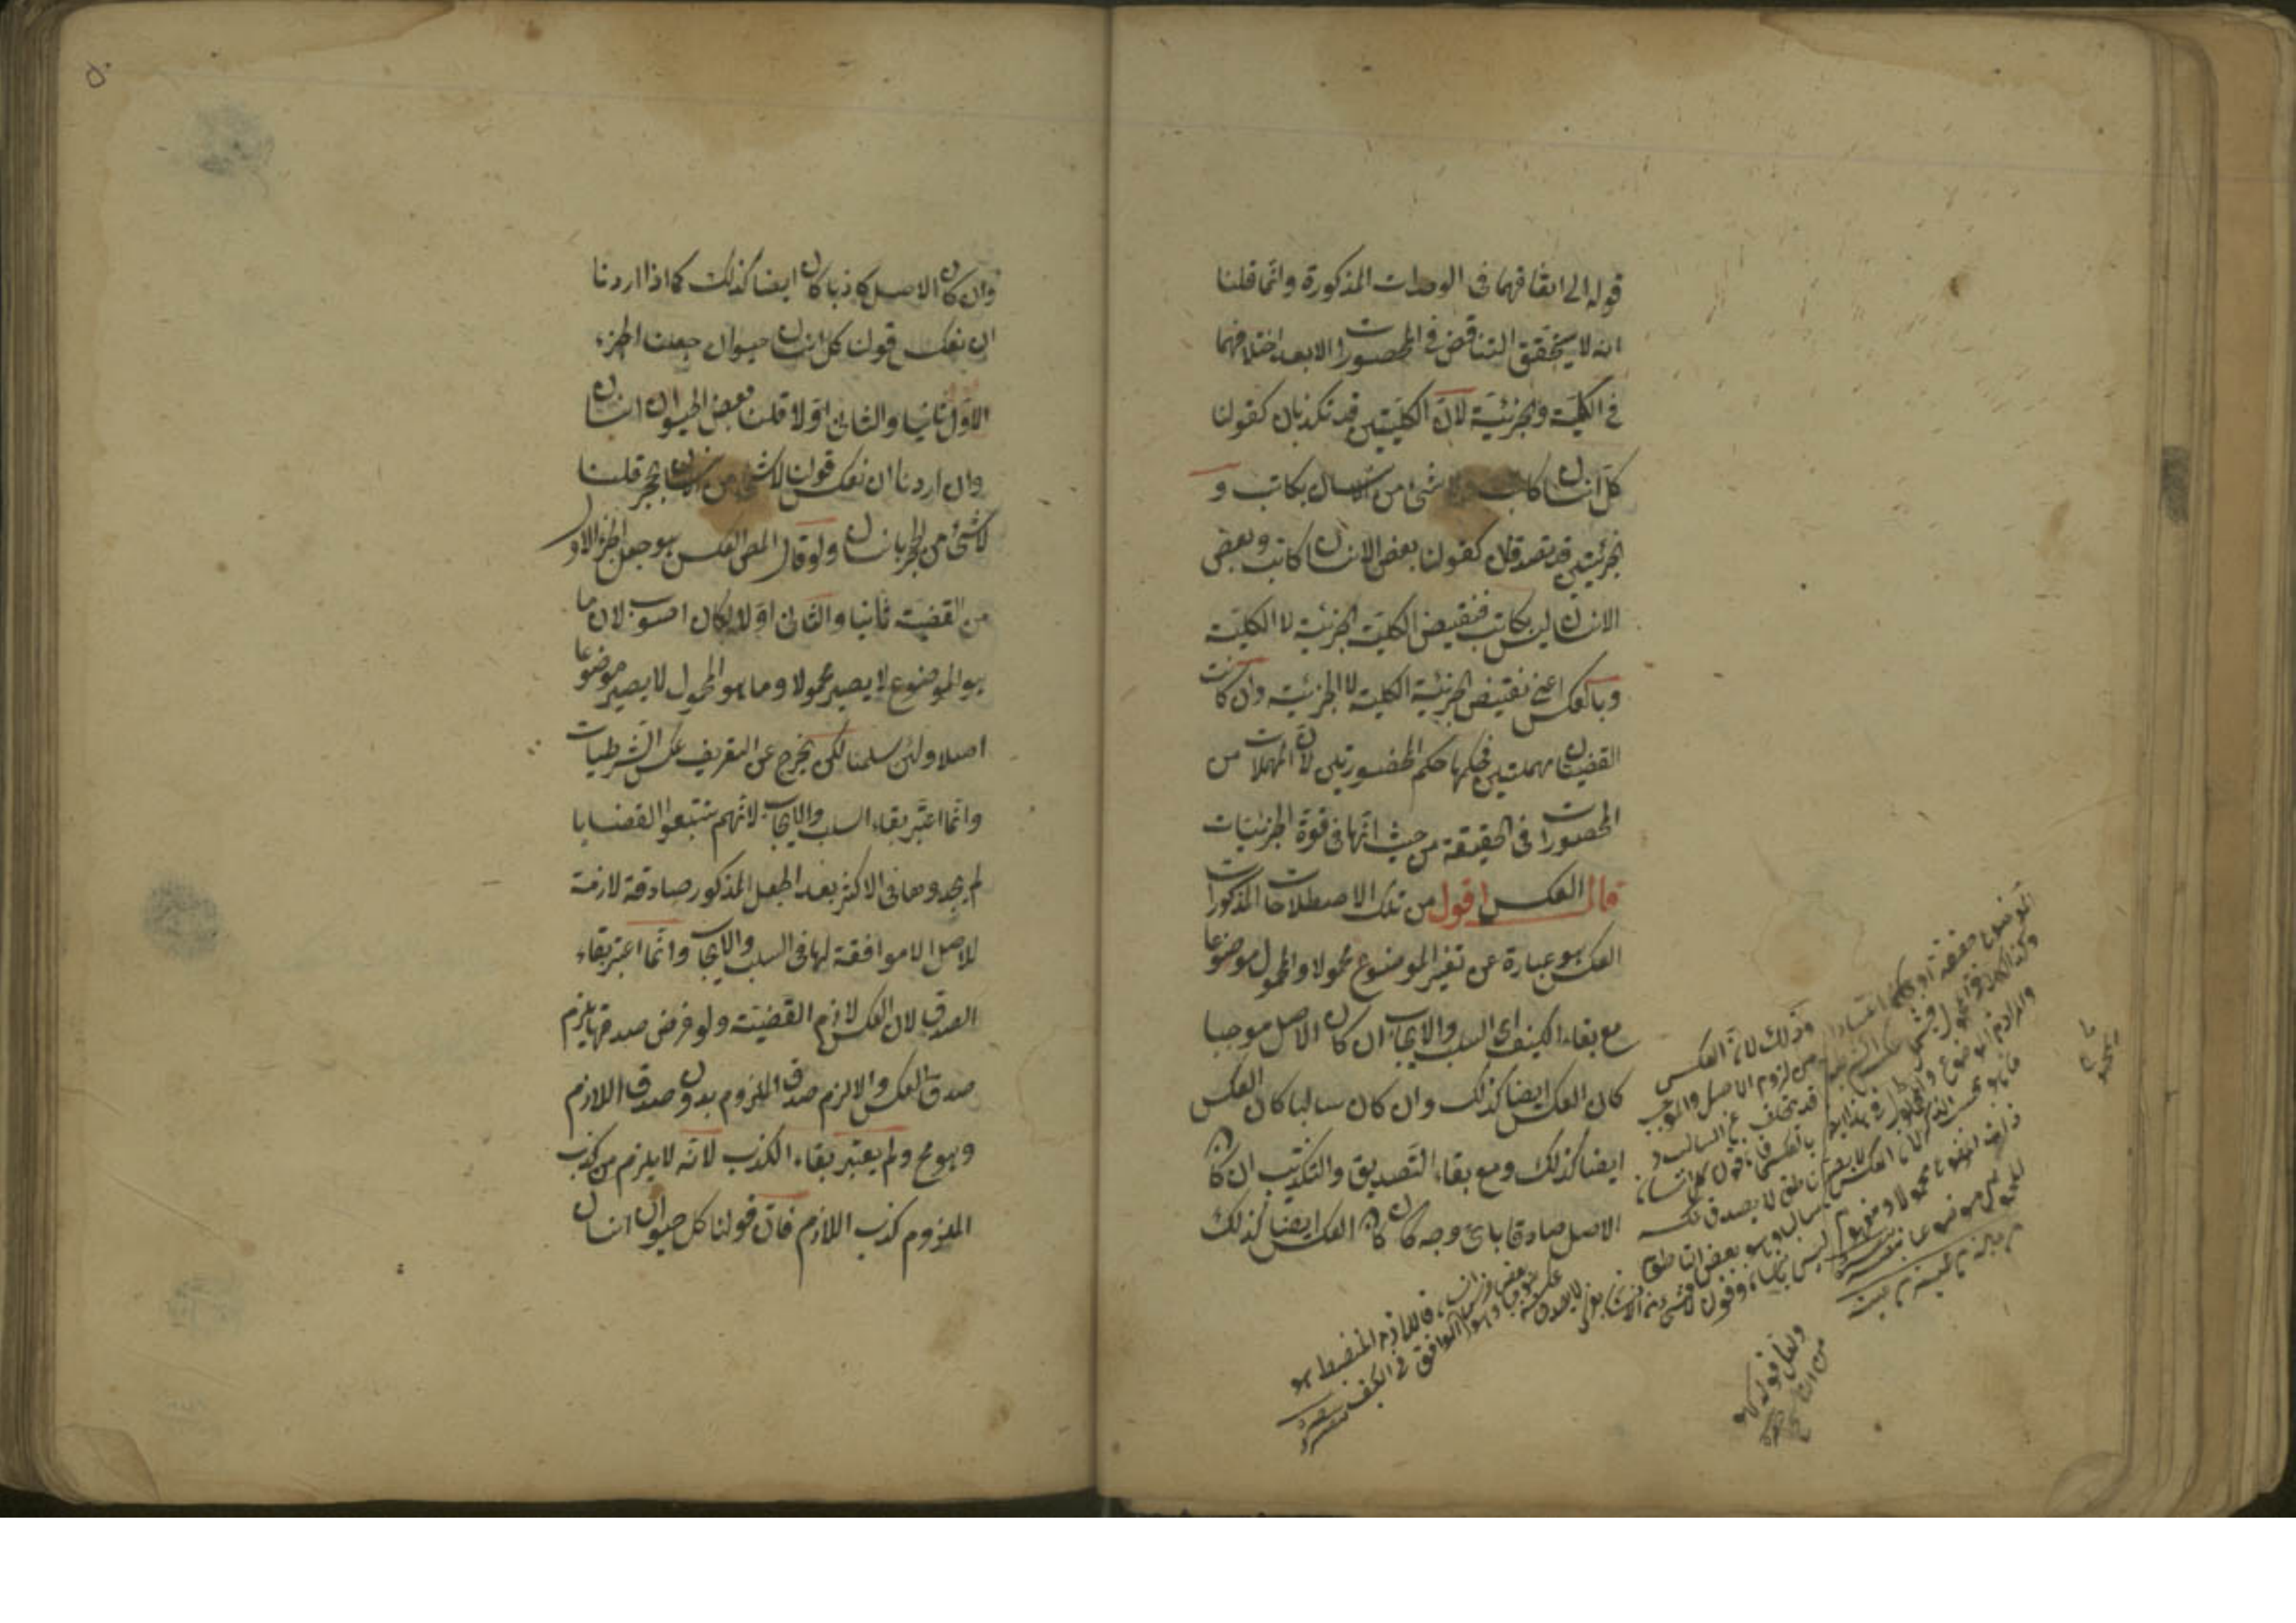 قوله الى اتفاقهما فى الوحدات المذكورة وانما قلنا
انه لا يتحقق التناقض فى المحصورات الا بعد اختلافهما
فى الكلية والجزئية لان الكليتين قد تكذبان كقولنا
كل انسان كاتب ولا شئ من الانسان بكاتب و
الجزئيتين قد تصدقان كقولنا بعض الانسان كاتب وبعض
الانسان ليس بكاتب فنقيض الكلية الجزئية لا الكلية
وبالعكس اعنى نقيض الجزئية الكلية لا الجزئية وان كانت
القضيتان مهملتين فحكمها حكم المحصورتين لان المهملات من
المحصورات فى الحقيقة من حيث انها فى قوة الجزئيات
قال العكس اقول من تلك الاصطلاحات المذكورات
العكس هو عبارة عن تغير الموضوع محمولا والمحمول موضوعا
مع بقاء الكيف اى السلب والايجاب ان كان الاصل موجبا
كان العكس ايضا كذلك وان كان سالبا كان العكس
ايضا كذلك ومع بقاء التصديق والتكذيب ان كان
الاصل صادقا باى وجه كان كان العكس ايضا كذلك
وذلك لان العكس
من لزوم الاصل والموجب
قد تخلف عن السالب
ناطق لا يصدق عكسه
فاللازم المنضبط هو
الموافق فى الكيف
٥٠
وان كان الاصل كاذبا كان ايضا كذلك كما اذا اردنا
ان نعكس قولنا كل انسان حيوان جعلنا الجزء
الاول ثانيا والثانى اولا قلنا بعض الحيوان انسان
وان اردنا ان نعكس قولنا لا شئ من الانسان بحجر قلنا
لا شئ من الحجر بانسان ولو قال المص العكس هو جعل الجزء الاول
من القضية ثانيا والثانى اولا لكان اصوب لان ما
هو الموضوع لا يصير محمولا وما هو المحمول لا يصير موضوعا
اصلا ولئن سلمنا لكن يخرج عن التعريف عكس الشرطيات
وانما اعتبر بقاء السلب والايجاب لانهم تتبعوا القضايا
لم يجدوها فى الاكثر بعد الجعل المذكور صادقة لازمة
للاصل الا موافقة لها فى السلب والايجاب وانما اعتبر بقاء
الصدق لان العكس لازم القضية ولو فرض صدقها يلزم
صدق العكس والا لزم صدق الملزوم بدون صدق اللازم
وهو مح ولم يعتبر بقاء الكذب لانه لا يلزم من كذب
الملزوم كذب اللازم فان قولنا كل حيوان انسان